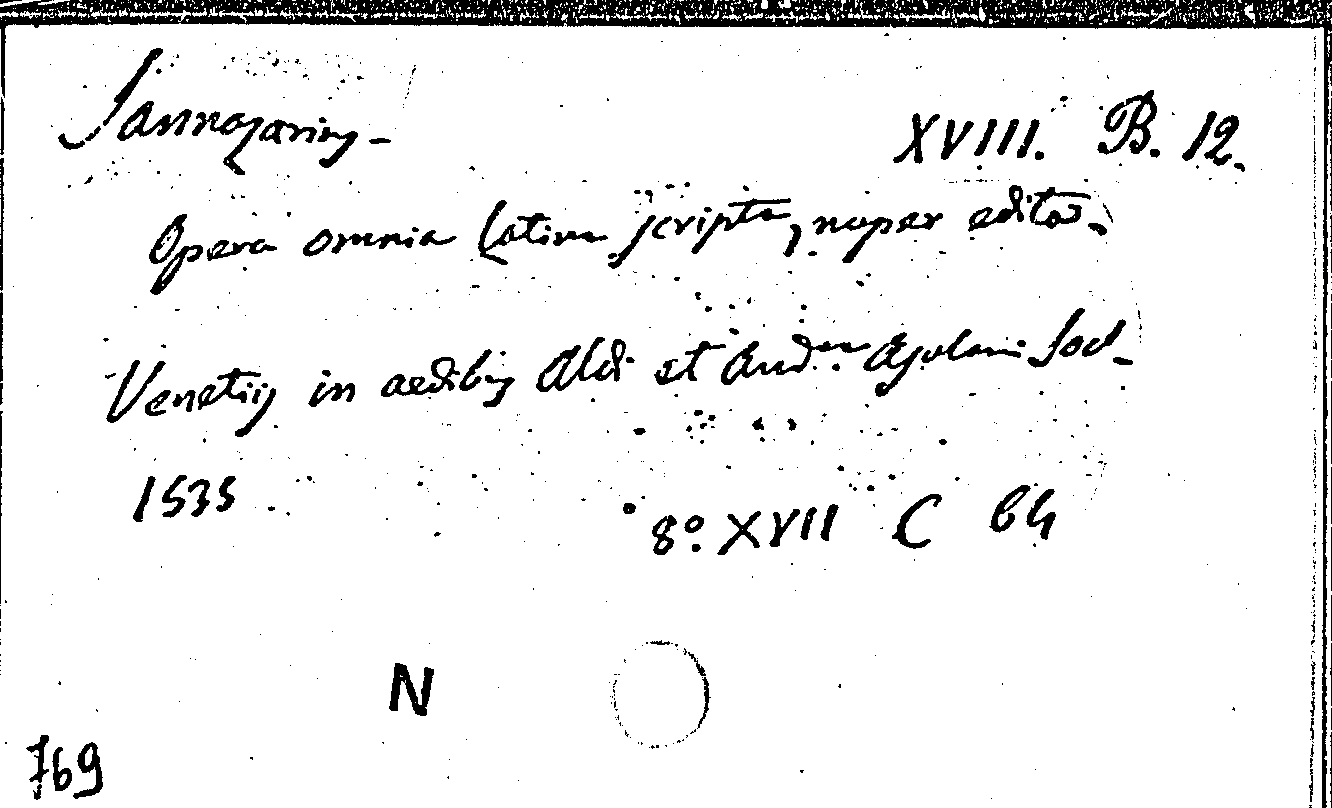 Sannazarius -
XVIII. B. 12.
Opera omnia latina scripta, nuper edita -
Venetiis in aedibus Aldi et Andreae Asulani Soc -
1535
8º. XVII C 64
N
769